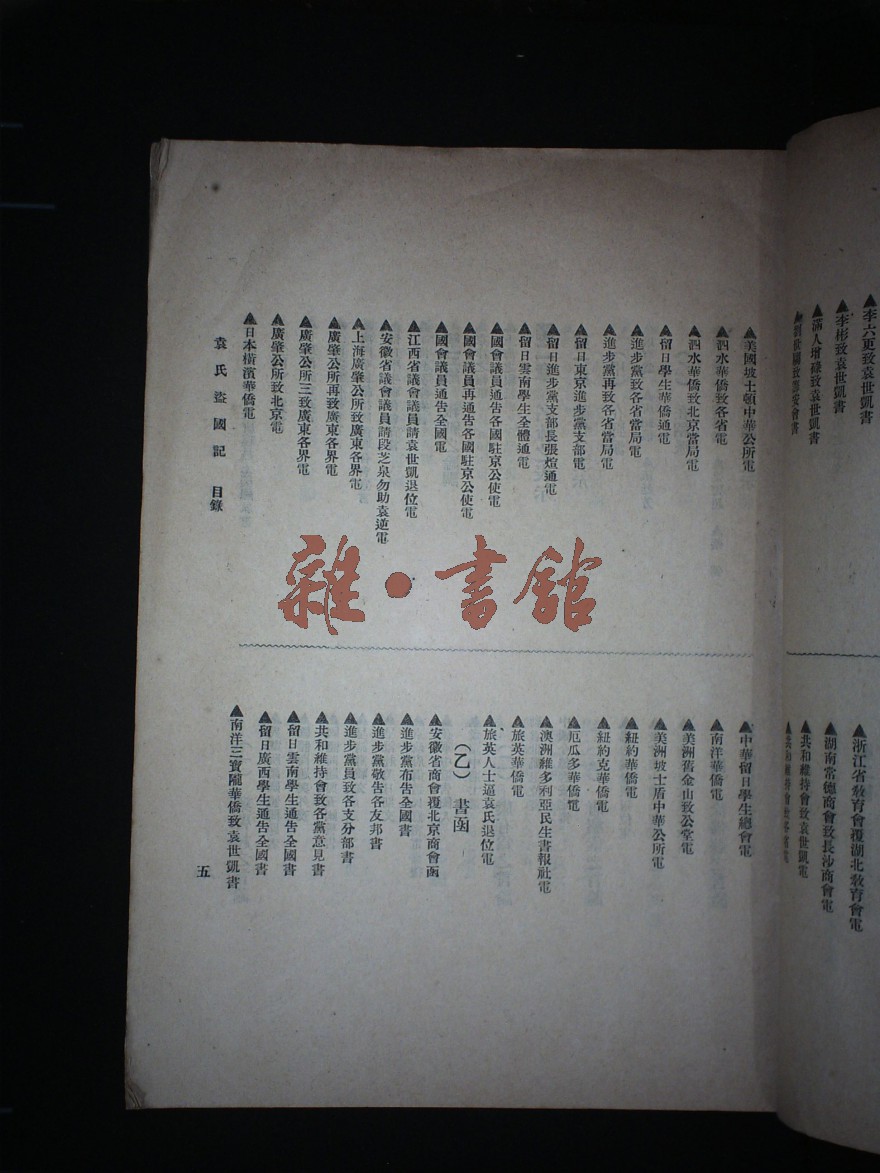 ▲李六更致袁世凱書
▲李彬致袁世凱書
▲滿人增祿致袁世凱書
▲浙江省教育會覆湖北教育會電
▲湖南常德商會致長沙商會電
▲共和維持會致袁世凱電
▲美國坡士頓中華公所電
▲泗水華僑致各省電
▲泗水華僑致北京當局電
▲留日學生華僑通電
▲進步黨致各省當局電
▲進步黨再致各省當局電
▲留日東京進步黨支部電
▲留日進步黨支部長張煊通電
▲留日雲南學生全體通電
▲國會議員通告各國駐京公使電
▲國會議員再通告各國駐京公使電
▲國會議員通告全國電
▲江西省議會議員請袁世凱退位電
▲安徽省議會議員請段芝泉勿助袁逆電
▲上海廣肇公所致廣東各界電
▲廣肇公所再致廣東各界電
▲廣肇公所三致廣東各界電
▲廣肇公所致北京電
▲日本橫濱華僑電
▲中華留日學生總會電
▲南洋華僑電
▲美洲舊金山致公堂電
▲美洲坡士盾中華公所電
▲紐約華僑電
▲紐約克華僑電
▲厄瓜多華僑電
▲澳洲維多利亞民生書報社電
▲旅英華僑電
▲旅英人士逼袁氏退位電
(乙) 書函
▲安徽省商會覆北京商會函
▲進步黨布告全國書
▲進步黨敬告各友邦書
▲進步黨員致各支分部書
▲共和維持會致各黨意見書
▲留日雲南學生通告全國書
▲留日廣西學生通告全國書
▲南洋三寶隴華僑致袁世凱書
袁氏盜國記 目錄
五
雜·書館